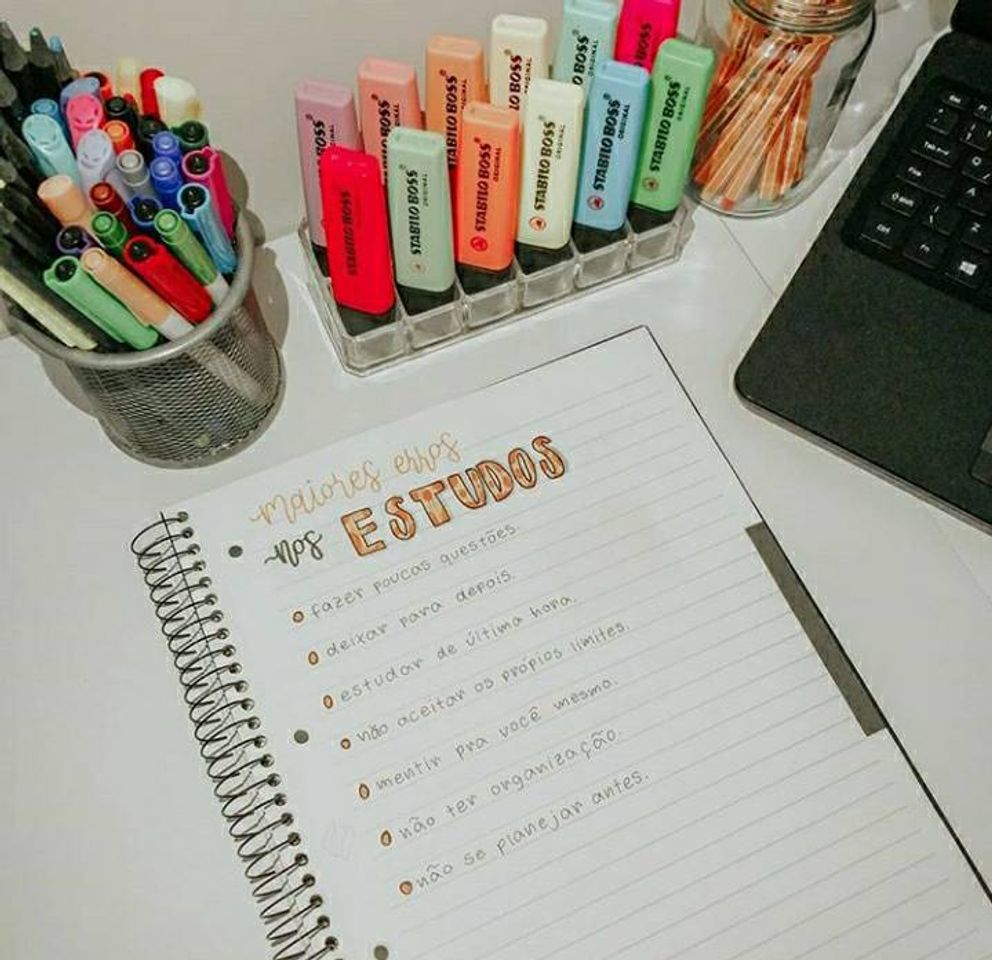 STABILO BOSS ORIGINAL
STABILO BOSS
STABILO BOSS ORIGINAL
STABILO BOSS ORIGINAL
STABILO BOSS
STABILO BOSS
STABILO BOSS
STABILO BOSS ORIGINAL
STABILO BOSS ORIGINAL
STABILO BOSS ORIGINAL
STABILO BOSS ORIGINAL
STABILO BOSS ORIGINAL
maiores erros
nos ESTUDOS
fazer poucas questões.
deixar para depois.
estudar de última hora.
não aceitar os própios limites.
mentir pra você mesmo.
não ter organização.
não se planejar antes.
Ctrl
Fn